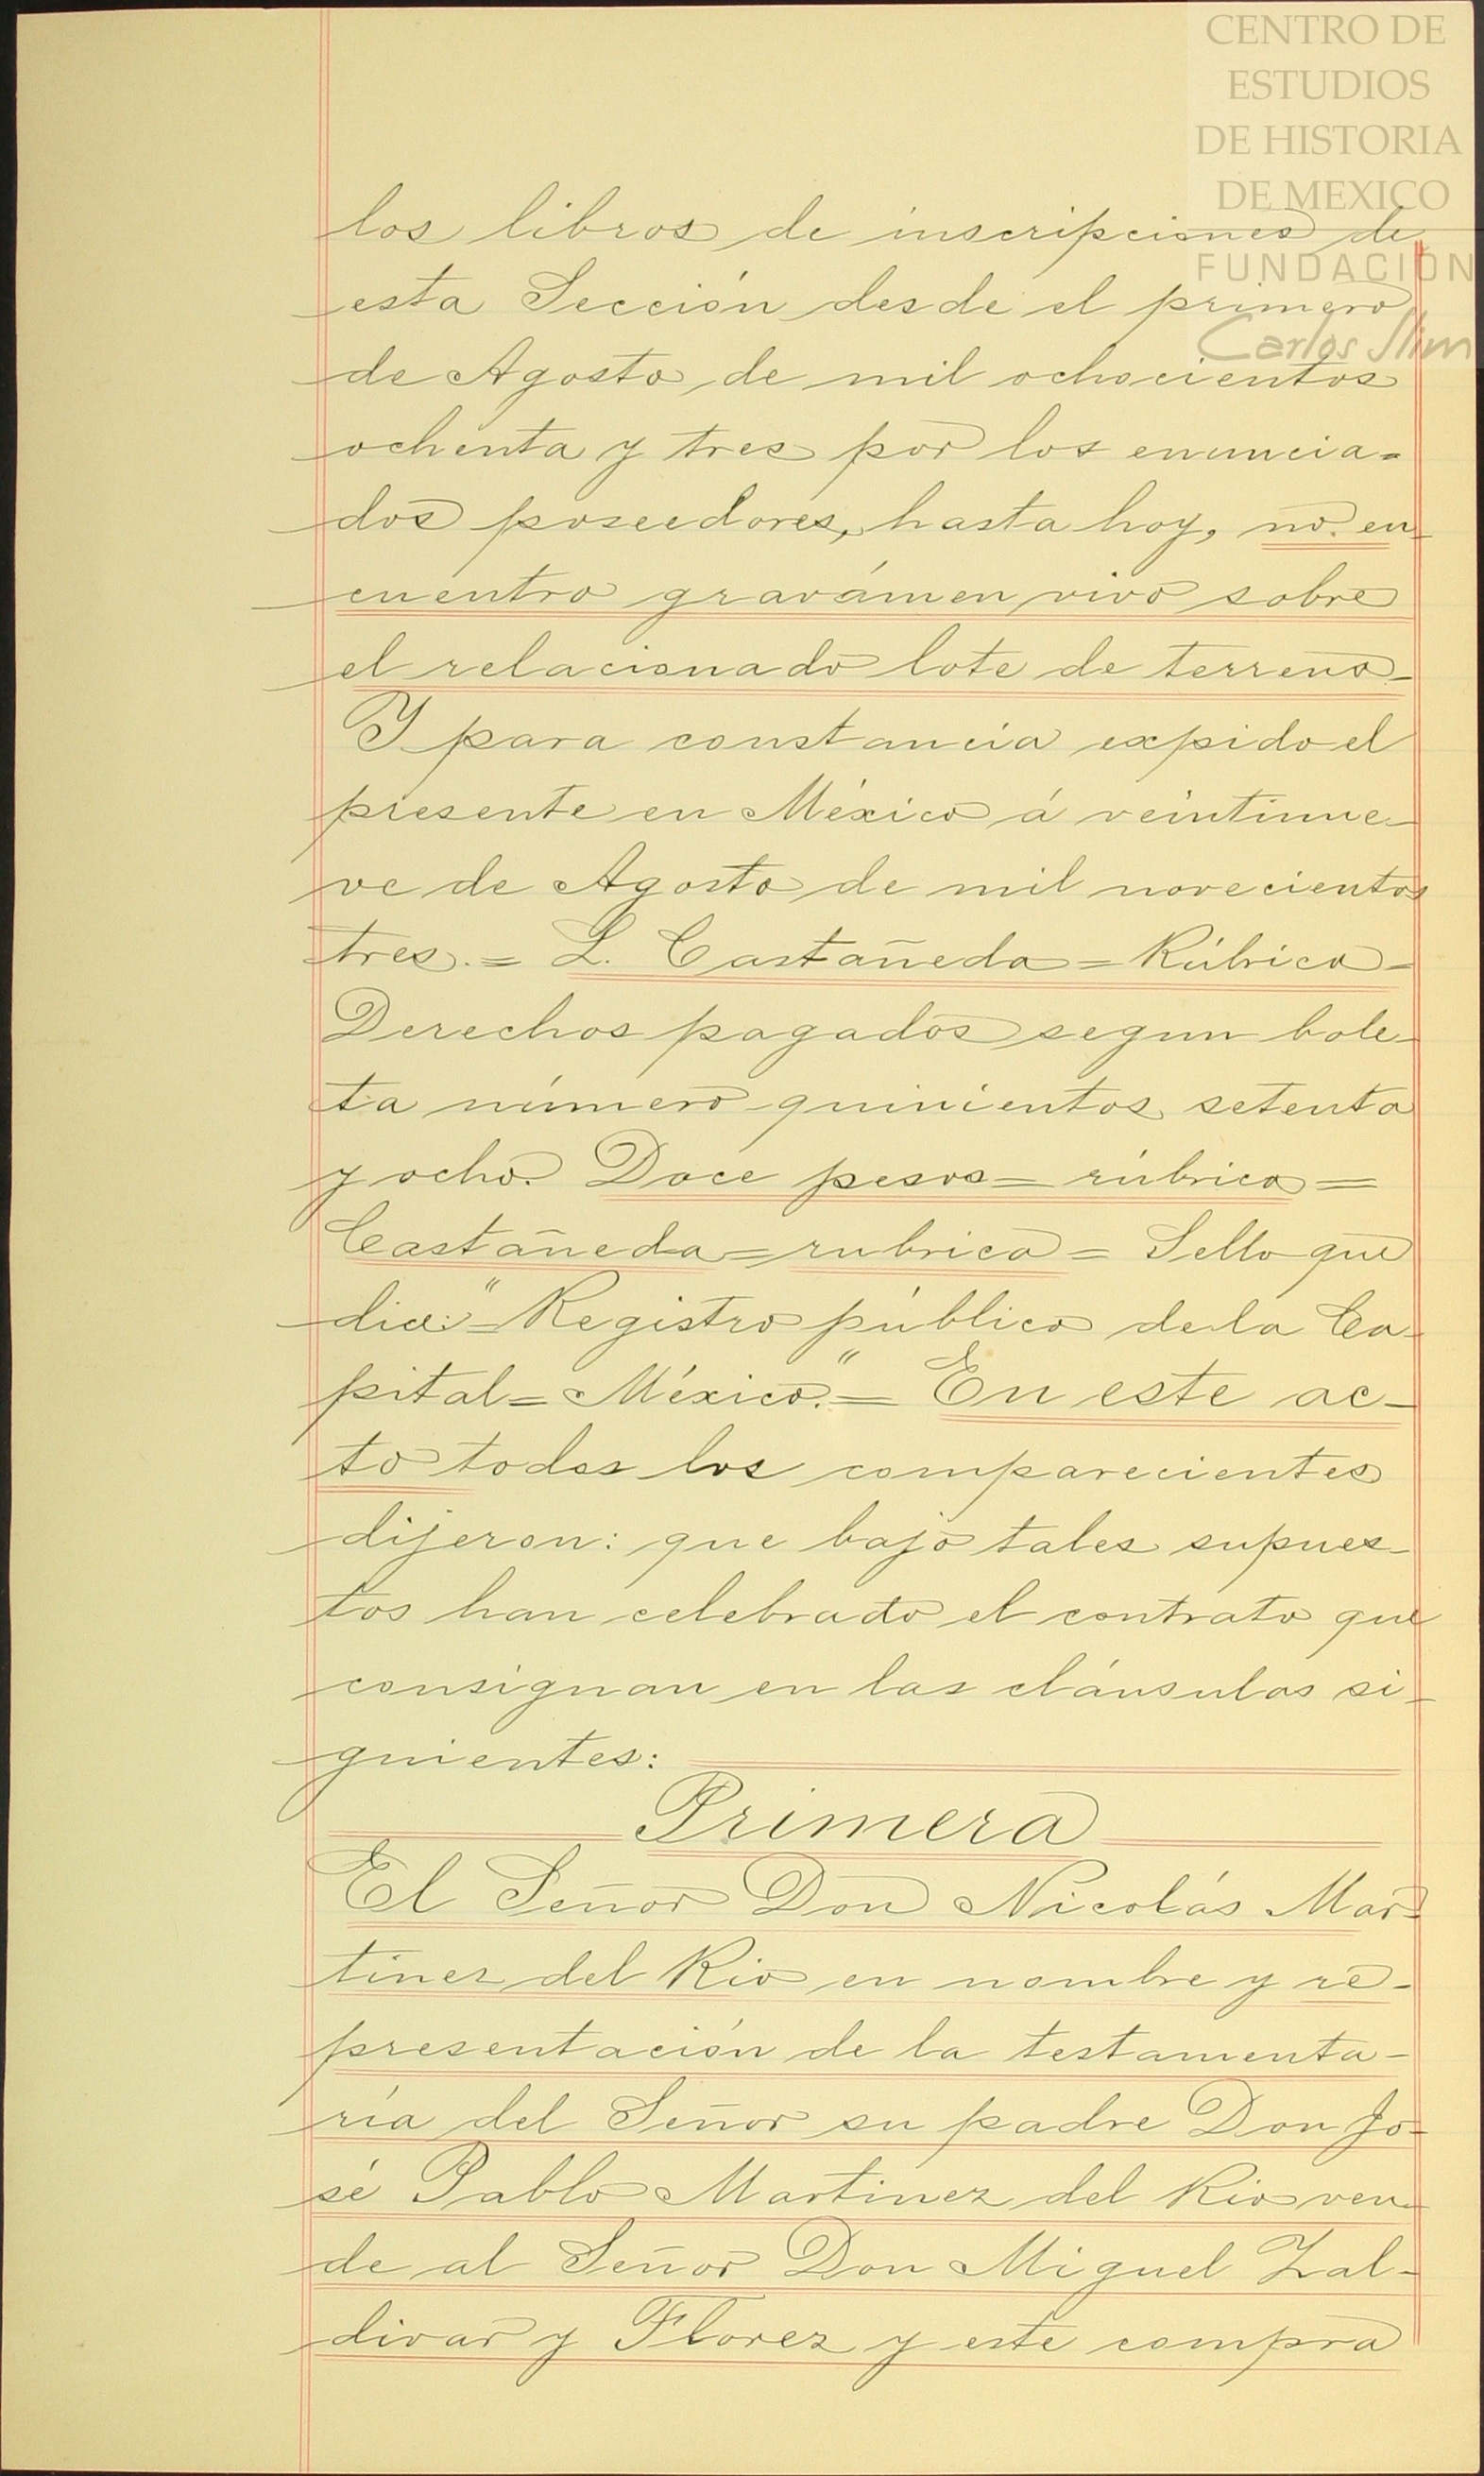 CENTRO DE
ESTUDIOS
DE HISTORIA
DE MEXICO
FUNDACIÓN
Carlos Slim
los libros de inscripciones de
esta Sección desde el primero
de Agosto de mil ochocientos
ochenta y tres por los enuncia=
dos poseedores, hasta hoy, no. en-
cuentro gravámen vivo sobre
el relacionado lote de terreno-
Y para constancia expido el
presente en México á veintinue-
ve de Agosto de mil novecientos
tres.= L. Castañeda = Rúbrica =
Derechos pagados segun bole-
ta número quinientos setenta
y ocho. Doce pesos = rúbrica =
Castañeda = rubrica = Sello que
dice: "= Registro público de la Ca-
pital = México." = En este ac-
to todos los comparecientes
dijeron: que bajo tales supues-
tos han celebrado el contrato que
consignan en las cláusulas si-
guientes:
Primera
El Señor Don Nicolás Mar-
tinez del Rio en nombre y re-
presentación de la testamenta-
ría del Señor su padre Don Jo-
sé Pablo Martinez del Rio ven-
de al Señor Don Miguel Zal-
divar y Florez y este compra